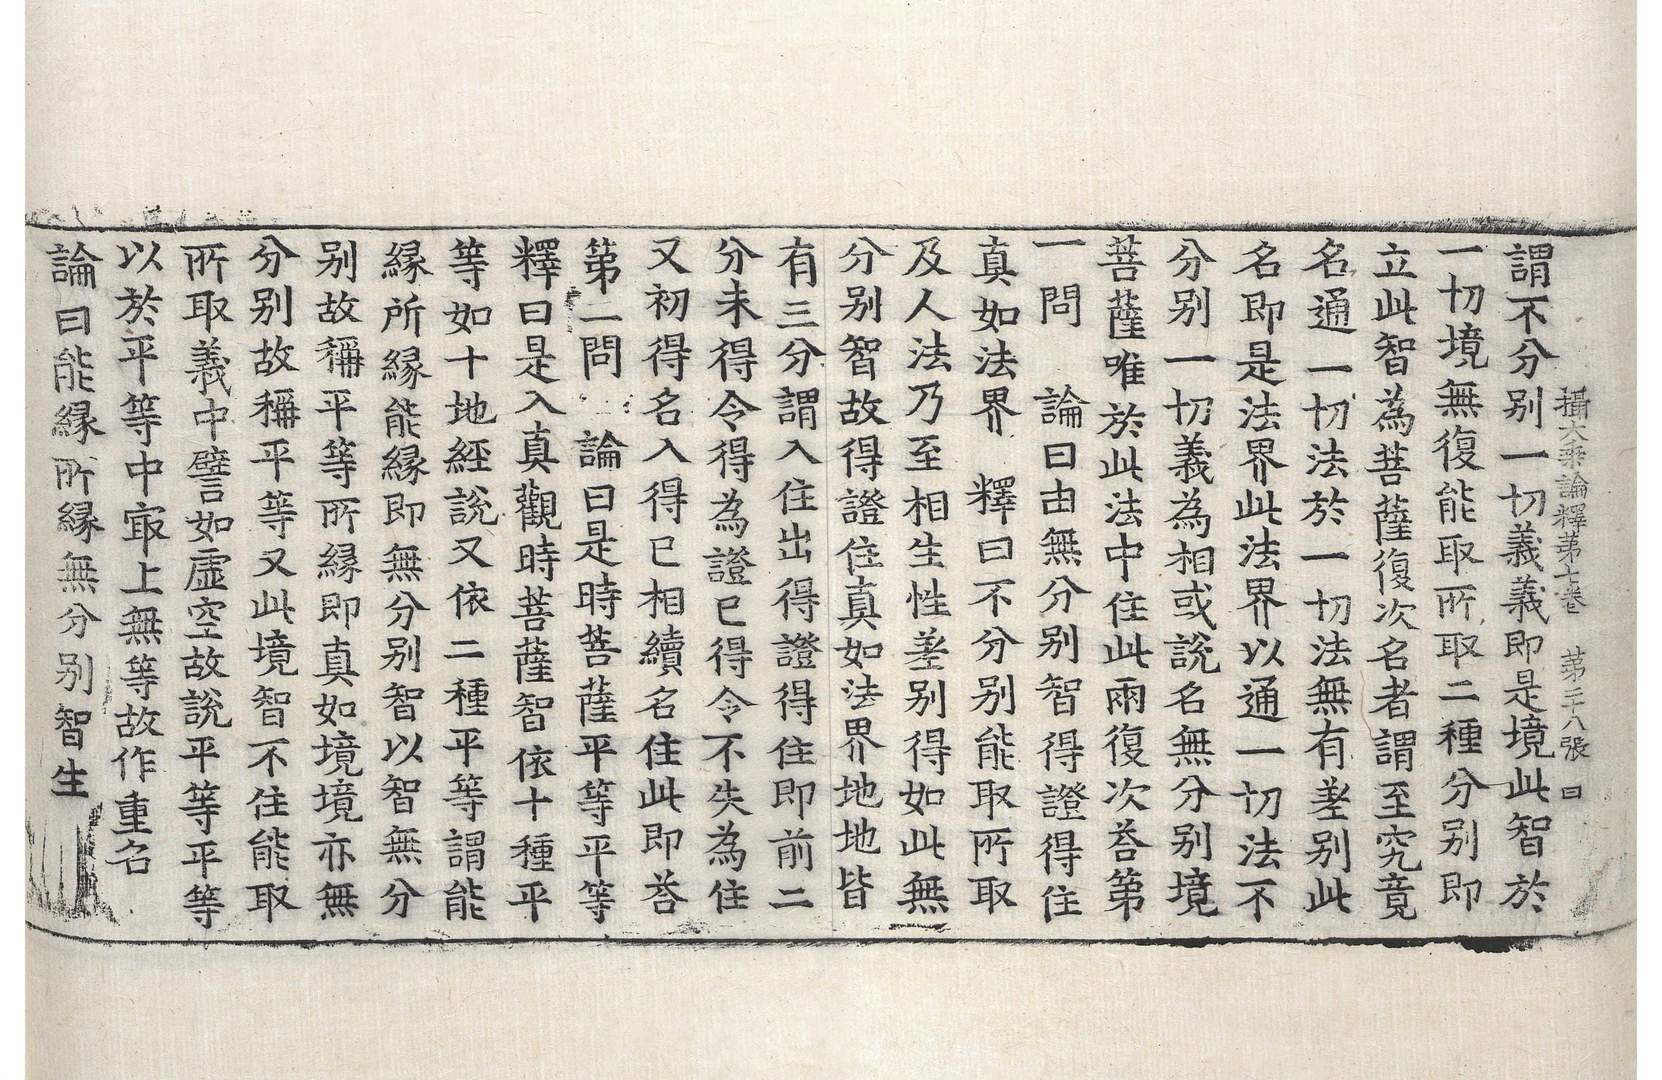 攝大乗論釋第七卷　第二十八張　曰
謂不分别一切義義即是境此智於
一切境無復能取所取二種分别即
立此智為菩薩復次名者謂至究竟
名通一切法於一切法無有差别此
名即是法界此法界以通一切法不
分别一切義為相或說名無分别境
菩薩唯於此法中住此兩復次荅第
一問　論曰由無分别智得證得住
真如法界　釋曰不分别能取所取
及人法乃至相生性差别得如此無
分别智故得證住真如法界地地皆
有三分謂入住出得證得住即前二
分未得令得為證已得令不失為住
又初得名入得已相續名住此即荅
第二問　論曰是時菩薩平等平等
釋曰是入真觀時菩薩智依十種平
等如十地經說又依二種平等謂能
縁所縁能縁即無分别智以智無分
别故稱平等所縁即真如境境亦無
分别故稱平等又此境智不住能取
所取義中譬如虛空故說平等平等
以於平等中㝡上無等故作重名
論曰能縁所縁無分别智生